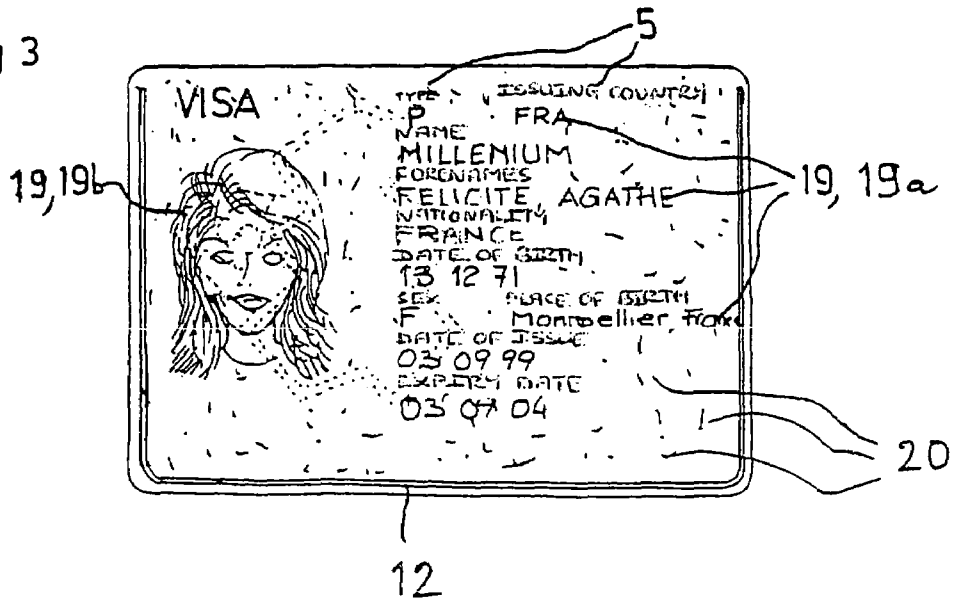 g 3
5
VISA
TYPE ISSUING COUNTRY
P FRA
NAME
MILLENIUM
FORENAMES
19, 19b
FELICITE, AGATHE
19, 19a
NATIONALITY
FRANCE
DATE OF BIRTH
13 12 71
SEX PLACE OF BIRTH
F Montpellier, France
DATE OF ISSUE
03 09 99
EXPIRY DATE
03 07 04
20
12